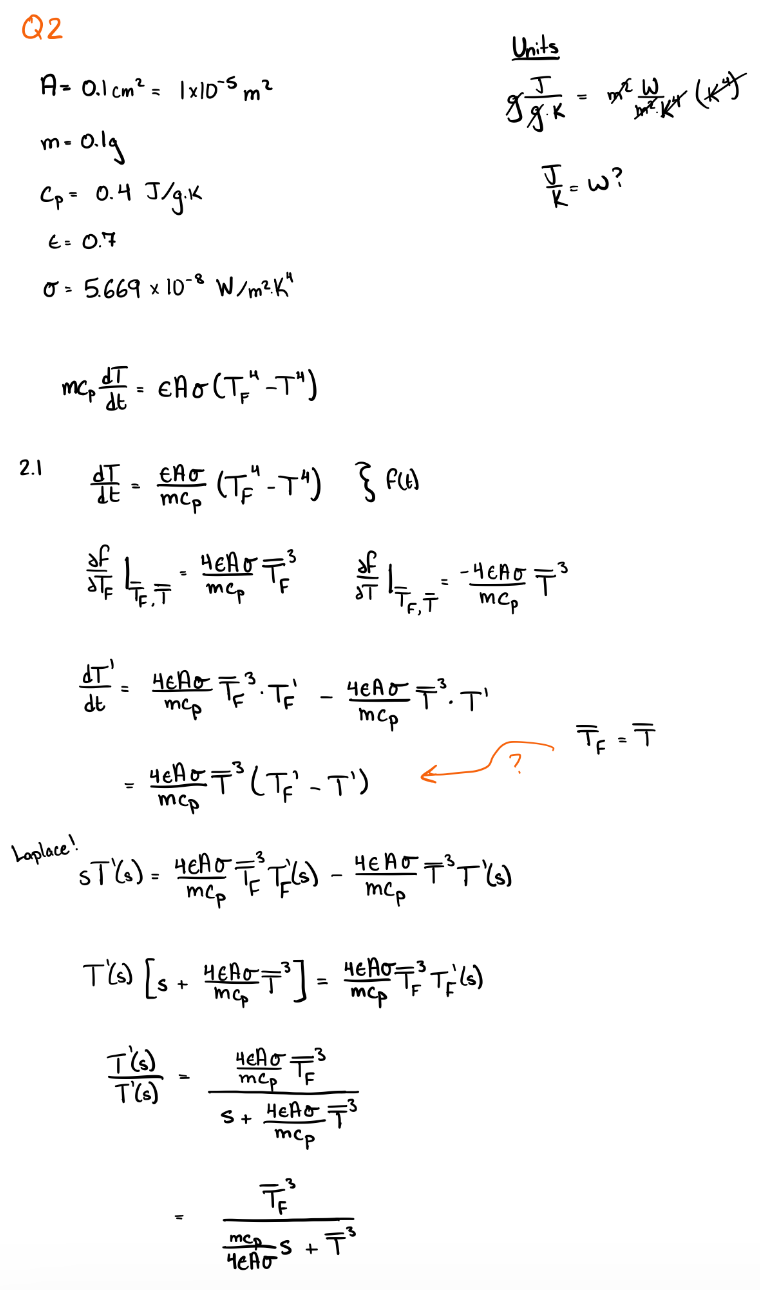 Q2
A = 0.1 cm² = 1×10⁻⁵ m²
m = 0.1g
Cp = 0.4 J/g.K
ϵ = 0.7
σ = 5.669 × 10⁻⁸ W/m².K⁴
Units
g J/g.K = m² W/m².K⁴ (K⁴)
J/K = W?
mCp dT/dt = ϵAσ(T_F⁴ - T⁴)
2.1 dT/dt = ϵAσ/mCp (T_F⁴ - T⁴) } f(t)
∂f/∂T_F |_T̄_F, T̄ = 4ϵAσ/mCp T̄_F³ ∂f/∂T |_T̄_F, T̄ = -4ϵAσ/mCp T̄³
dT'/dt = 4ϵAσ/mCp T̄_F³ · T_F' - 4ϵAσ/mCp T̄³ · T'
T̄_F = T̄
= 4ϵAσ/mCp T̄³ (T_F' - T') ?
Laplace!
sT'(s) = 4ϵAσ/mCp T̄_F³ T_F'(s) - 4ϵAσ/mCp T̄³ T'(s)
T'(s) [s + 4ϵAσ/mCp T̄³] = 4ϵAσ/mCp T̄_F³ T_F'(s)
T'(s)/T'(s) = (4ϵAσ/mCp T̄_F³)/(s + 4ϵAσ/mCp T̄³)
= T̄_F³/(mCp/4ϵAσ s + T̄³)